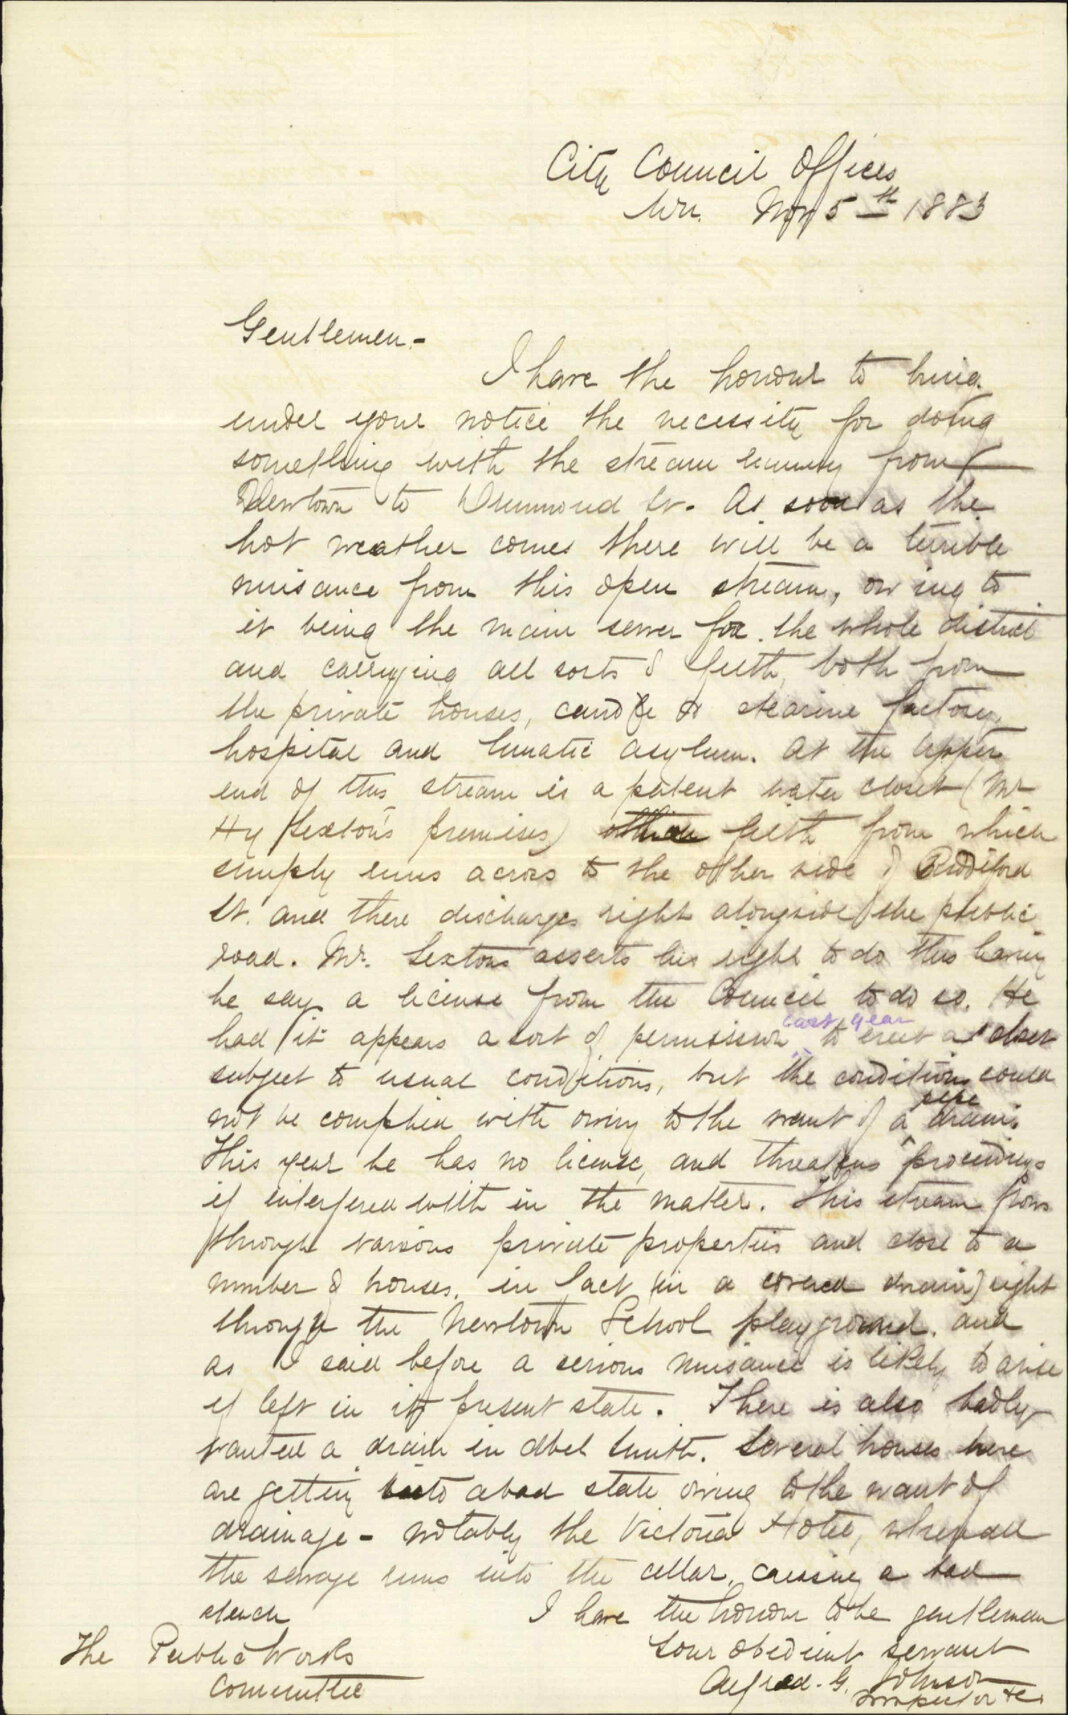 City Council Offices
Wn. Nov 5th 1883
Gentlemen.-
I have the honour to bring
under your notice the necessity for doing
something with the stream running from
Newtown to Drummond St. As soon as the
hot weather comes there will be a terrible
nuisance from this open stream, owing to
it being the main sewer for the whole district
and carrying all sorts of filth, both from
the private houses, candle & stearine factory,
hospital and lunatic asylum. At the upper
end of this stream is a patent water closet (Mr
Hy Sexton's premises) filth from which
simply runs across to the other side of Riddiford
St. and there discharges right alongside the public
road. Mr. Sexton asserts his right to do this having
he says a license from the Council to do so. He
had it appears a sort of permission last year to erect a closet
subject to usual conditions, but the conditions could
not be complied with owing to the want of a pipe drain.
This year he has no license, and threatens proceedings
if interfered with in the matter. This stream flows
through various private properties and close to a
number of houses. in fact (in a covered drain) right
through the Newtown School playground. and
as I said before a serious nuisance is likely to arise
if left in its present state. There is also badly
wanted a drain in Abel Smith. Several houses here
are getting into a bad state owing to the want of
drainage - notably the Victoria Hotel, where all
the sewage runs into the cellar, causing a bad
stench
I have the honour to be gentlemen
Your obedient servant
Alfred. G. Johnson
Inspector &c.
The Public Works
Committee